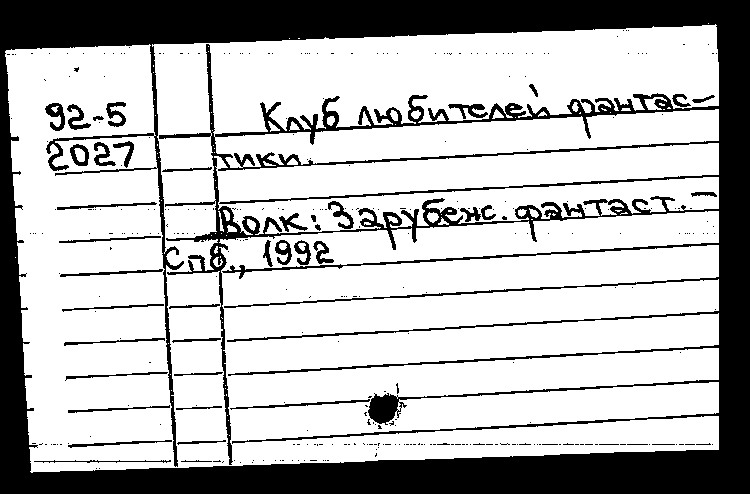 92-5
Клуб любителей фантас-
2027
тики.
Волк: Зарубеж. фантаст. –
Спб., 1992